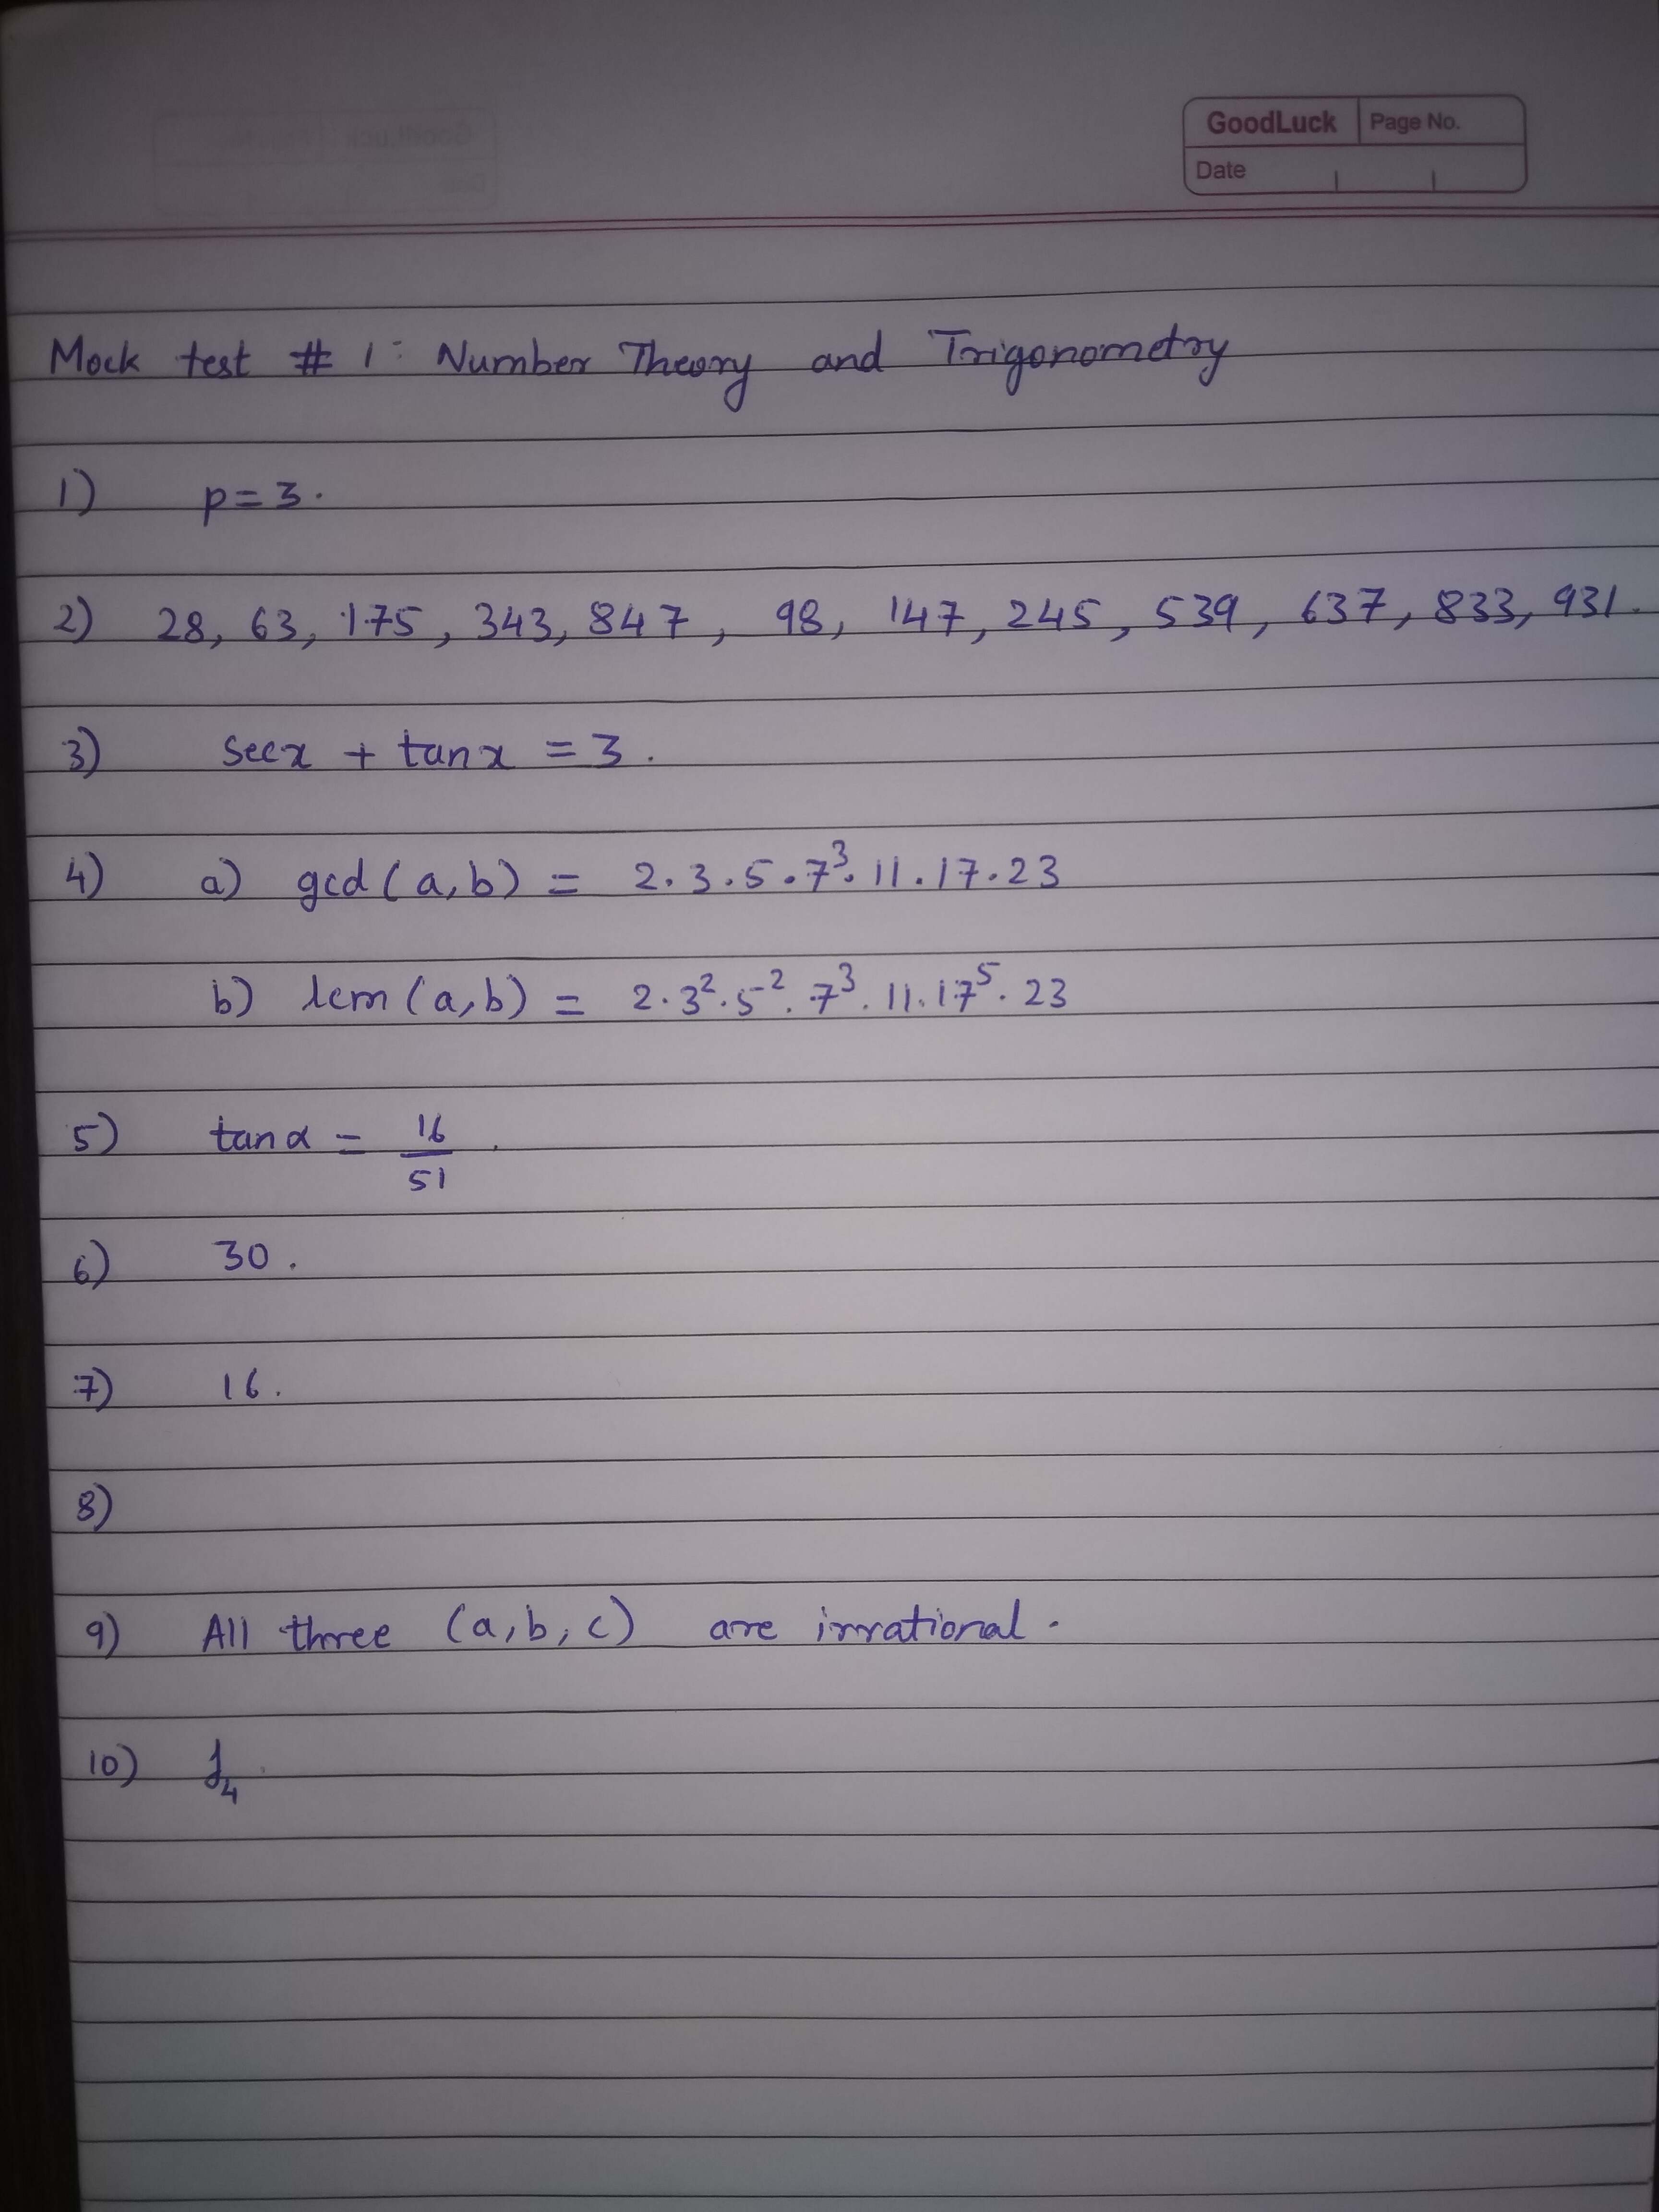 GoodLuck Page No.
Date
Mock test # 1: Number Theory and Trigonometry
1) p=3.
2) 28, 63, 175, 343, 847, 98, 147, 245, 539, 637, 833, 931.
3) secx + tanx = 3.
4) a) gcd(a,b) = 2.3.5.7³.11.17.23
b) lcm(a,b) = 2.3².5².7³.11.17⁵.23
5) tanα = 16/51.
6) 30.
7) 16.
8)
9) All three (a,b,c) are irrational.
10) f₄